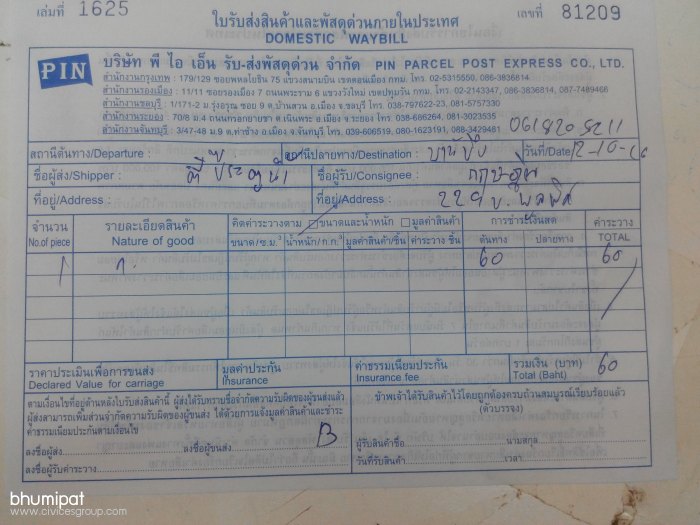 เล่มที่ 1625 ใบรับส่งสินค้าและพัสดุด่วนภายในประเทศ เลขที่ 81209
DOMESTIC WAYBILL
PIN บริษัท พี ไอ เอ็น รับ-ส่งพัสดุด่วน จำกัด PIN PARCEL POST EXPRESS CO., LTD.
สำนักงานกรุงเทพ : 179/129 ซอยพหลโยธิน 75 แขวงสนามบิน เขตดอนเมือง กทม. โทร. 02-5315550, 086-3836814
สำนักงานรองเมือง : 11/11 ซอยรองเมือง 7 ถนนพระราม 6 แขวงวังใหม่ เขตปทุมวัน กทม. โทร. 02-2143347, 086-3836812, 087-7489466
สำนักงานชลบุรี : 1/171-2 ม.รุ่งอรุณ ซอย 9 ต.บ้านสวน อ.เมือง จ.ชลบุรี โทร. 038-797622-23, 081-5757330
สำนักงานระยอง : 70/8 ม.4 ถนนกรอกยายชา ต.เนินพระ อ.เมือง จ.ระยอง โทร. 038-686264, 081-3023535
สำนักงานจันทบุรี : 3/47-48 ม.9 ต.ท่าช้าง อ.เมือง จ.จันทบุรี โทร. 039-606519, 080-1623191, 088-3429461
สถานีต้นทาง/Departure : สถานีปลายทาง/Destination : บ้านบึง วันที่/Date 12-10-
ชื่อผู้ส่ง/Shipper : ชื่อผู้รับ/Consignee :
ที่อยู่/Address : ที่อยู่/Address : 229
จำนวน รายละเอียดสินค้า คิดค่าระวางตาม ขนาดและน้ำหนัก มูลค่าสินค้า การชำระเงินสด ค่าระวาง
No.of piece Nature of good ขนาด/ซ.ม.³ น้ำหนัก/ก.ก. มูลค่าสินค้า/ชิ้น ค่าระวาง ชิ้น ต้นทาง ปลายทาง TOTAL
1 60 60
ราคาประเมินเพื่อการขนส่ง มูลค่าประกัน ค่าธรรมเนียมประกัน รวมเงิน (บาท) 60
Declared Value for carriage Insurance Insurance fee Total (Baht)
ตามเงื่อนไขที่อยู่ด้านหลังใบรับส่งสินค้านี้ ผู้ส่งได้รับทราบข้อจำกัดความรับผิดของผู้ขนส่งแล้ว
ผู้ส่งสามารถเพิ่มส่วนจำกัดความรับผิดของผู้ขนส่ง ได้ด้วยการแจ้งมูลค่าสินค้าและชำระ
ค่าธรรมเนียมประกันตามเงื่อนไข
ลงชื่อผู้ส่ง ลงชื่อผู้ส่ง B
ลงชื่อผู้รับค่าระวาง
ข้าพเจ้าได้รับสินค้าไว้โดยถูกต้องครบถ้วนสมบูรณ์เรียบร้อยแล้ว
(ตัวบรรจง)
ผู้รับสินค้าชื่อ นามสกุล
วันที่รับสินค้า เวลา
bhumipat
www.civicesgroup.com